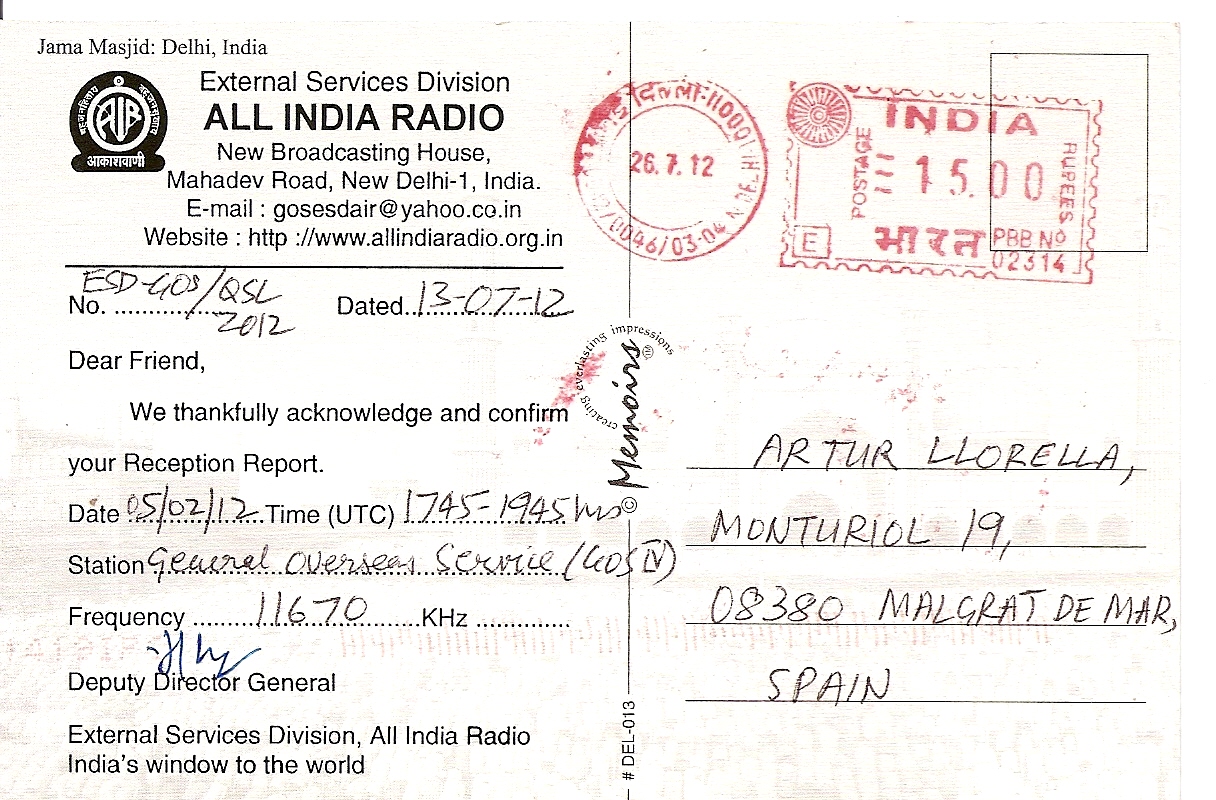 Jama Masjid: Delhi, India
External Services Division
ALL INDIA RADIO
आकाशवाणी
New Broadcasting House,
Mahadev Road, New Delhi-1, India.
E-mail : gosesdair@yahoo.co.in
Website : http ://www.allindiaradio.org.in
No. ESD-GOS/QSL 2012 Dated 13-07-12
Dear Friend,
We thankfully acknowledge and confirm
your Reception Report.
Date 05/02/12 Time (UTC) 1745-1945 hrs
Station General Overseas Service (GOS IV)
Frequency 11670 KHz
Deputy Director General
External Services Division, All India Radio
India's window to the world
creating everlasting impressions
© Memoirs
# DEL-013
26.7.12
INDIA
POSTAGE
15.00
RUPEES
E
भारत
PBB No
02314
ARTUR LLORELLA,
MONTURIOL 19,
08380 MALGRAT DE MAR,
SPAIN